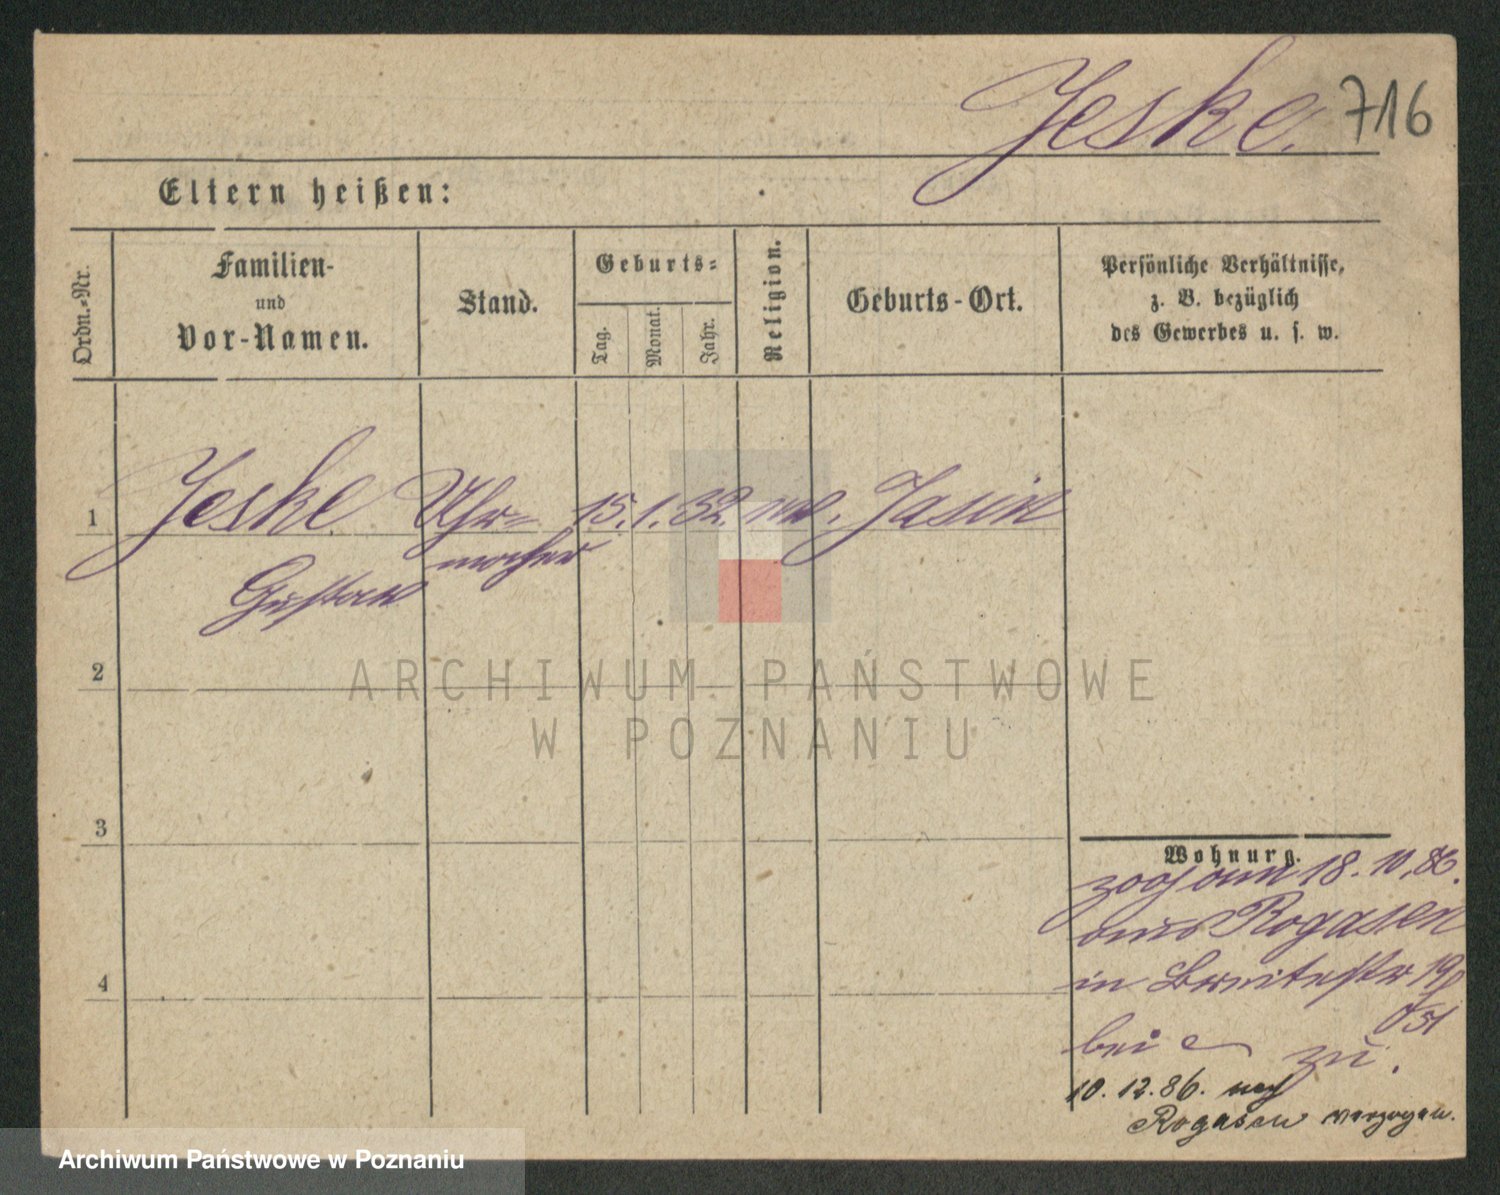 Jeske. 716
Eltern heißen:
Ordn.-Nr.
Familien-
und
Vor-Namen.
Stand.
Geburts-
Tag.
Monat.
Jahr.
Religion.
Geburts-Ort.
Persönliche Verhältnisse,
z. B. bezüglich
des Gewerbes u. s. w.
1 Jeske Uhr= 15. 1. 32. Jasin
Gustav macher
2
ARCHIWUM PAŃSTWOWE
W POZNANIU
3
Wohnung.
zog am 18. 10. 86.
aus Rogasen
in Breitestr 19
bei zu.
4
10. 12. 86. nach
Rogasen verzogen.
Archiwum Państwowe w Poznaniu